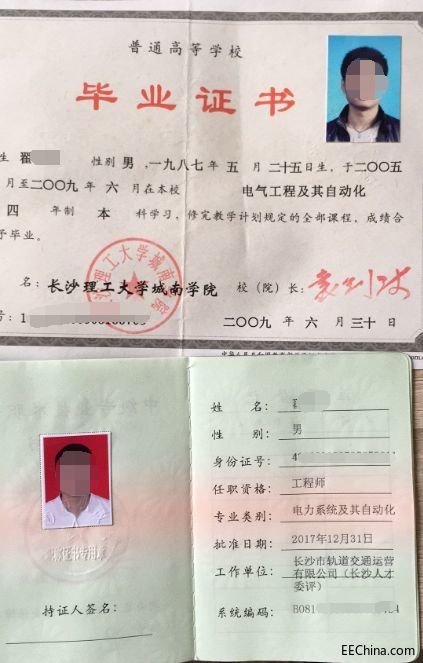 普通高等学校
毕业证书
生 翟 性别 男,一九八七年 五 月 二十五日生,于二〇〇五
月至二〇〇九年 六 月在本校 电气工程及其自动化
四 年制 本 科学习,修完教学计划规定的全部课程,成绩合
予毕业。
名:长沙理工大学城南学院 校(院)长:
二〇〇九年 六 月 三十日
姓 名:
性 别: 男
身份证号: 4
任职资格: 工程师
专业类别: 电力系统及其自动化
批准日期: 2017年12月31日
工作单位: 长沙市轨道交通运营
有限公司(长沙人才
委评)
系统编码: B081
持证人签名:
EEChina.com